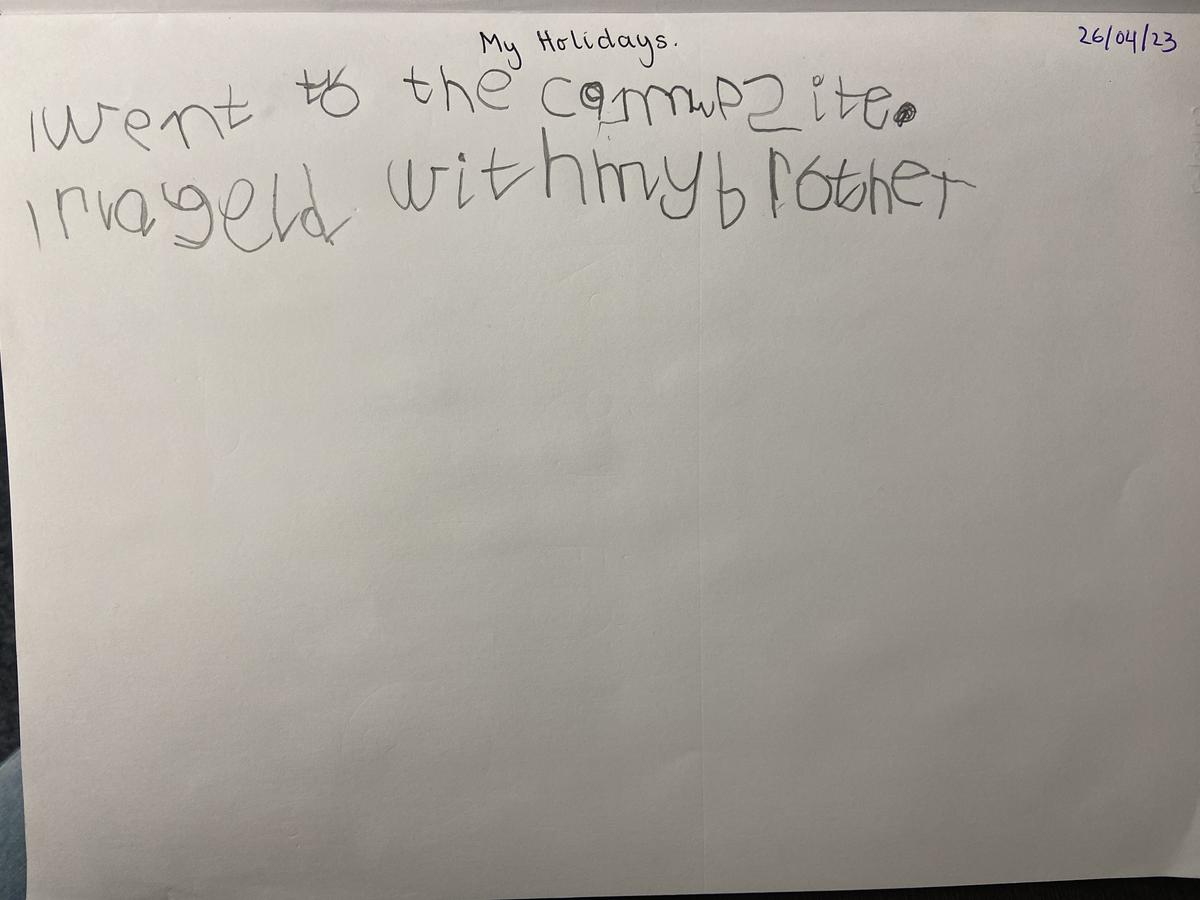 My Holidays. 26/04/23
I went to the campsite.
I with my brother